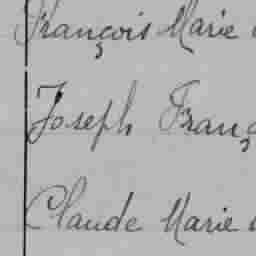 François Marie
Joseph Franç
Claude Marie